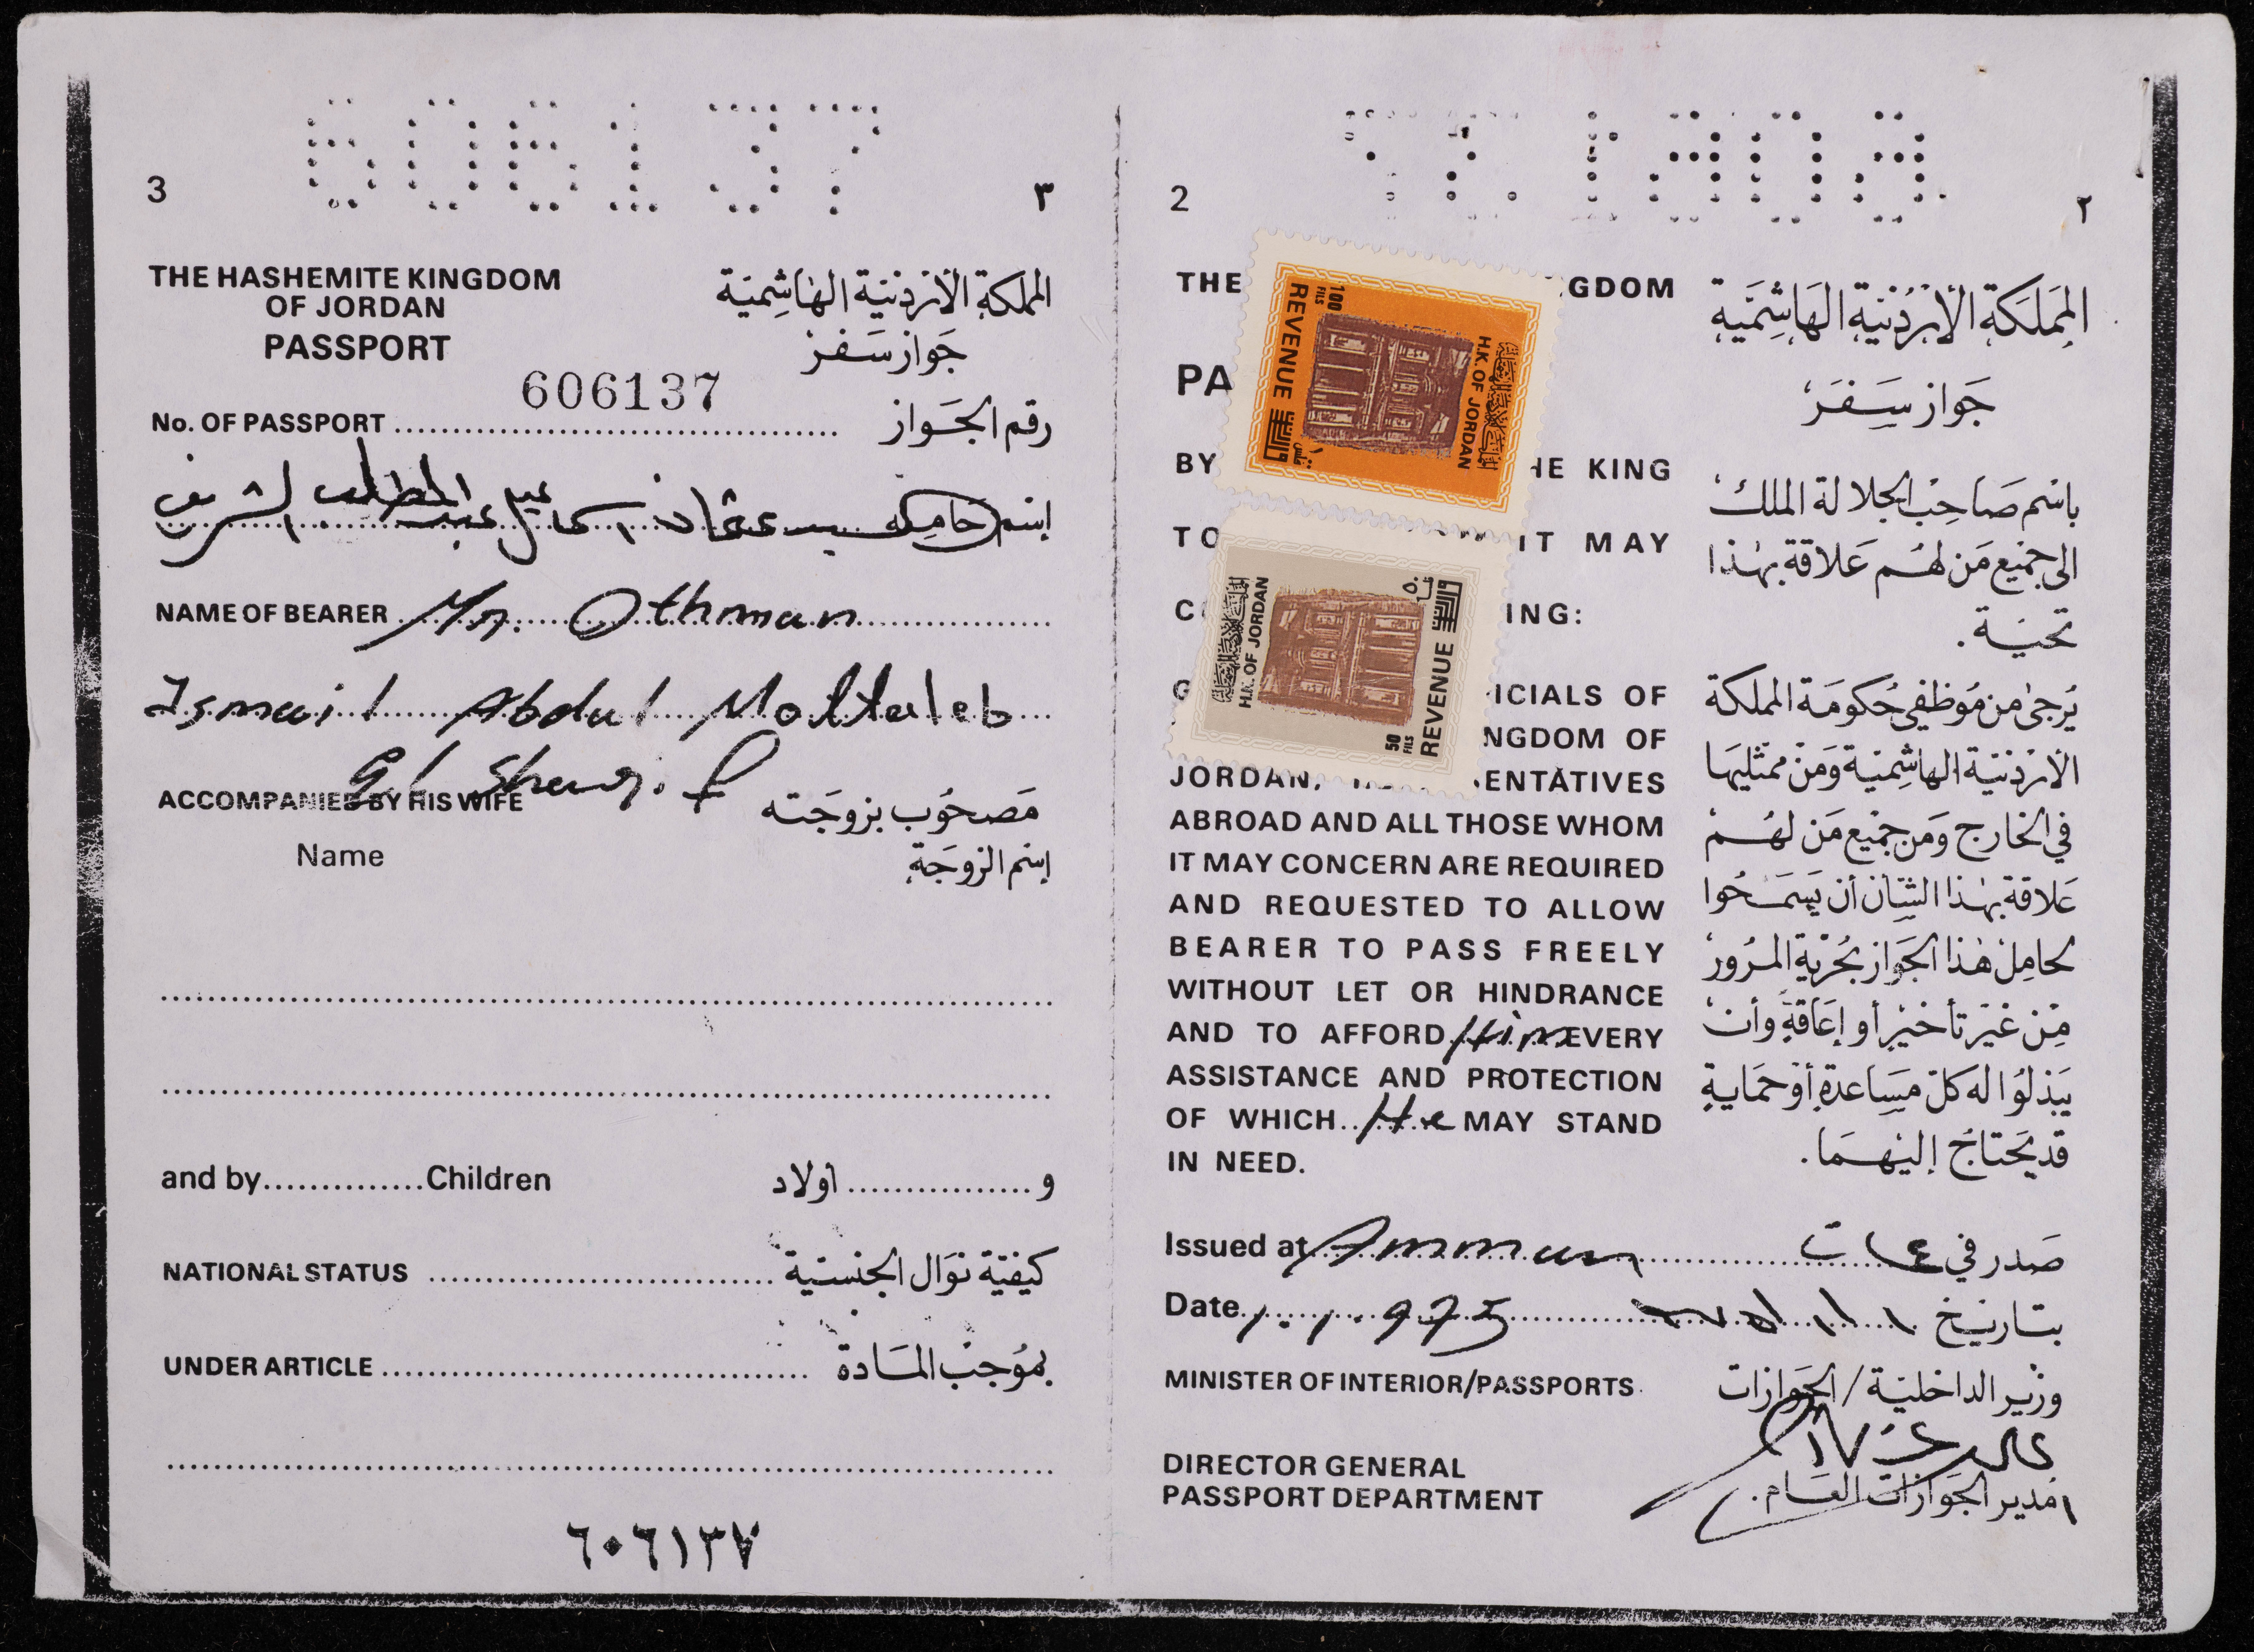 606137
3
٣
THE HASHEMITE KINGDOM
OF JORDAN
PASSPORT
المملكة الأردنية الهاشمية
جواز سفر
606137
No. OF PASSPORT
رقم الجواز
إسم حامله عثمان اسماعيل عبد المطلب الشريف
NAME OF BEARER Mr. Othman
Ismail Abdul Mottaleb
El Sharif
ACCOMPANIED BY HIS WIFE
مصحوب بزوجته
Name
إسم الزوجة
and by Children
و اولاد
NATIONAL STATUS
كيفية نوال الجنسية
UNDER ARTICLE
بموجب المادة
٦٠٦١٣٧
2
٢
THE GDOM
PA
BY HE KING
TO IT MAY
ING:
ICIALS OF
NGDOM OF
JORDAN, ENTATIVES
ABROAD AND ALL THOSE WHOM
IT MAY CONCERN ARE REQUIRED
AND REQUESTED TO ALLOW
BEARER TO PASS FREELY
WITHOUT LET OR HINDRANCE
AND TO AFFORD Him EVERY
ASSISTANCE AND PROTECTION
OF WHICH He MAY STAND
IN NEED.
100 FILS
REVENUE
H.K. OF JORDAN
H.K. OF JORDAN
٥٠
50 FILS
REVENUE
المملكة الأردنية الهاشمية
جواز سفر
باسم صاحب الجلالة الملك
الى جميع من لهم علاقة بهذا
تحية.
يرجى من موظفي حكومة المملكة
الأردنية الهاشمية ومن ممثليها
في الخارج ومن جميع من لهم
علاقة بهذا الشأن أن يسمحوا
لحامل هذا الجواز بحرية المرور
من غير تأخير أو إعاقة وأن
يبذلوا له كل مساعدة أو حماية
قد يحتاج إليهما.
Issued at Amman
صدر في عمان
Date 1.1.975
بتاريخ ١/١/٩٧٥
MINISTER OF INTERIOR/PASSPORTS
وزير الداخلية/الجوازات
DIRECTOR GENERAL
PASSPORT DEPARTMENT
مدير الجوازات العام.